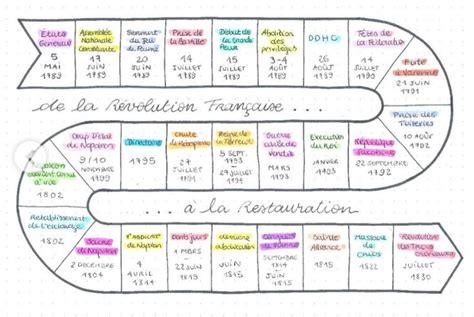 États Généraux
5 MAI 1789
Assemblée Nationale Constituante
17 JUIN 1789
Serment du Jeu de Paume
20 JUIN 1789
Prise de la Bastille
14 JUILLET 1789
Début de la Grande Peur
15 JUILLET 1789
Abolition des privilèges
3-4 AOÛT 1789
DDHC
26 AOÛT 1789
Fêtes de la Fédération
14 JUILLET
Fuite à Varennes
21 JUIN 1791
de la Révolution Française ...
Prise des Tuileries
10 AOÛT 1792
République
22 SEPTEMBRE 1792
Execution du Roi
JANVIER 1793
Guerre civile de Vendée
MARS 1793
Règne de la Terreur
5 SEPT. 1793
JUILLET 1794
Chute de Robespierre
27 JUILLET
Directoire
1795
Coup d'État de Napoléon
9/10 NOVEMBRE 1799
consul à vie
1802
Rétablissement de l'esclavage
1802
... à la Restauration
Sacre de Napoléon
2 DECEMBRE 1804
de Napoléon
4 AVRIL 1814
Cent jours
1 MARS -
22 JUIN 1815
dernière abdication
JUIN 1815
Congrès de Vienne
1815
Sainte Alliance
1815
Massacre de Chios
1822
Révolution des Trois Glorieuses
JUILLET 1830